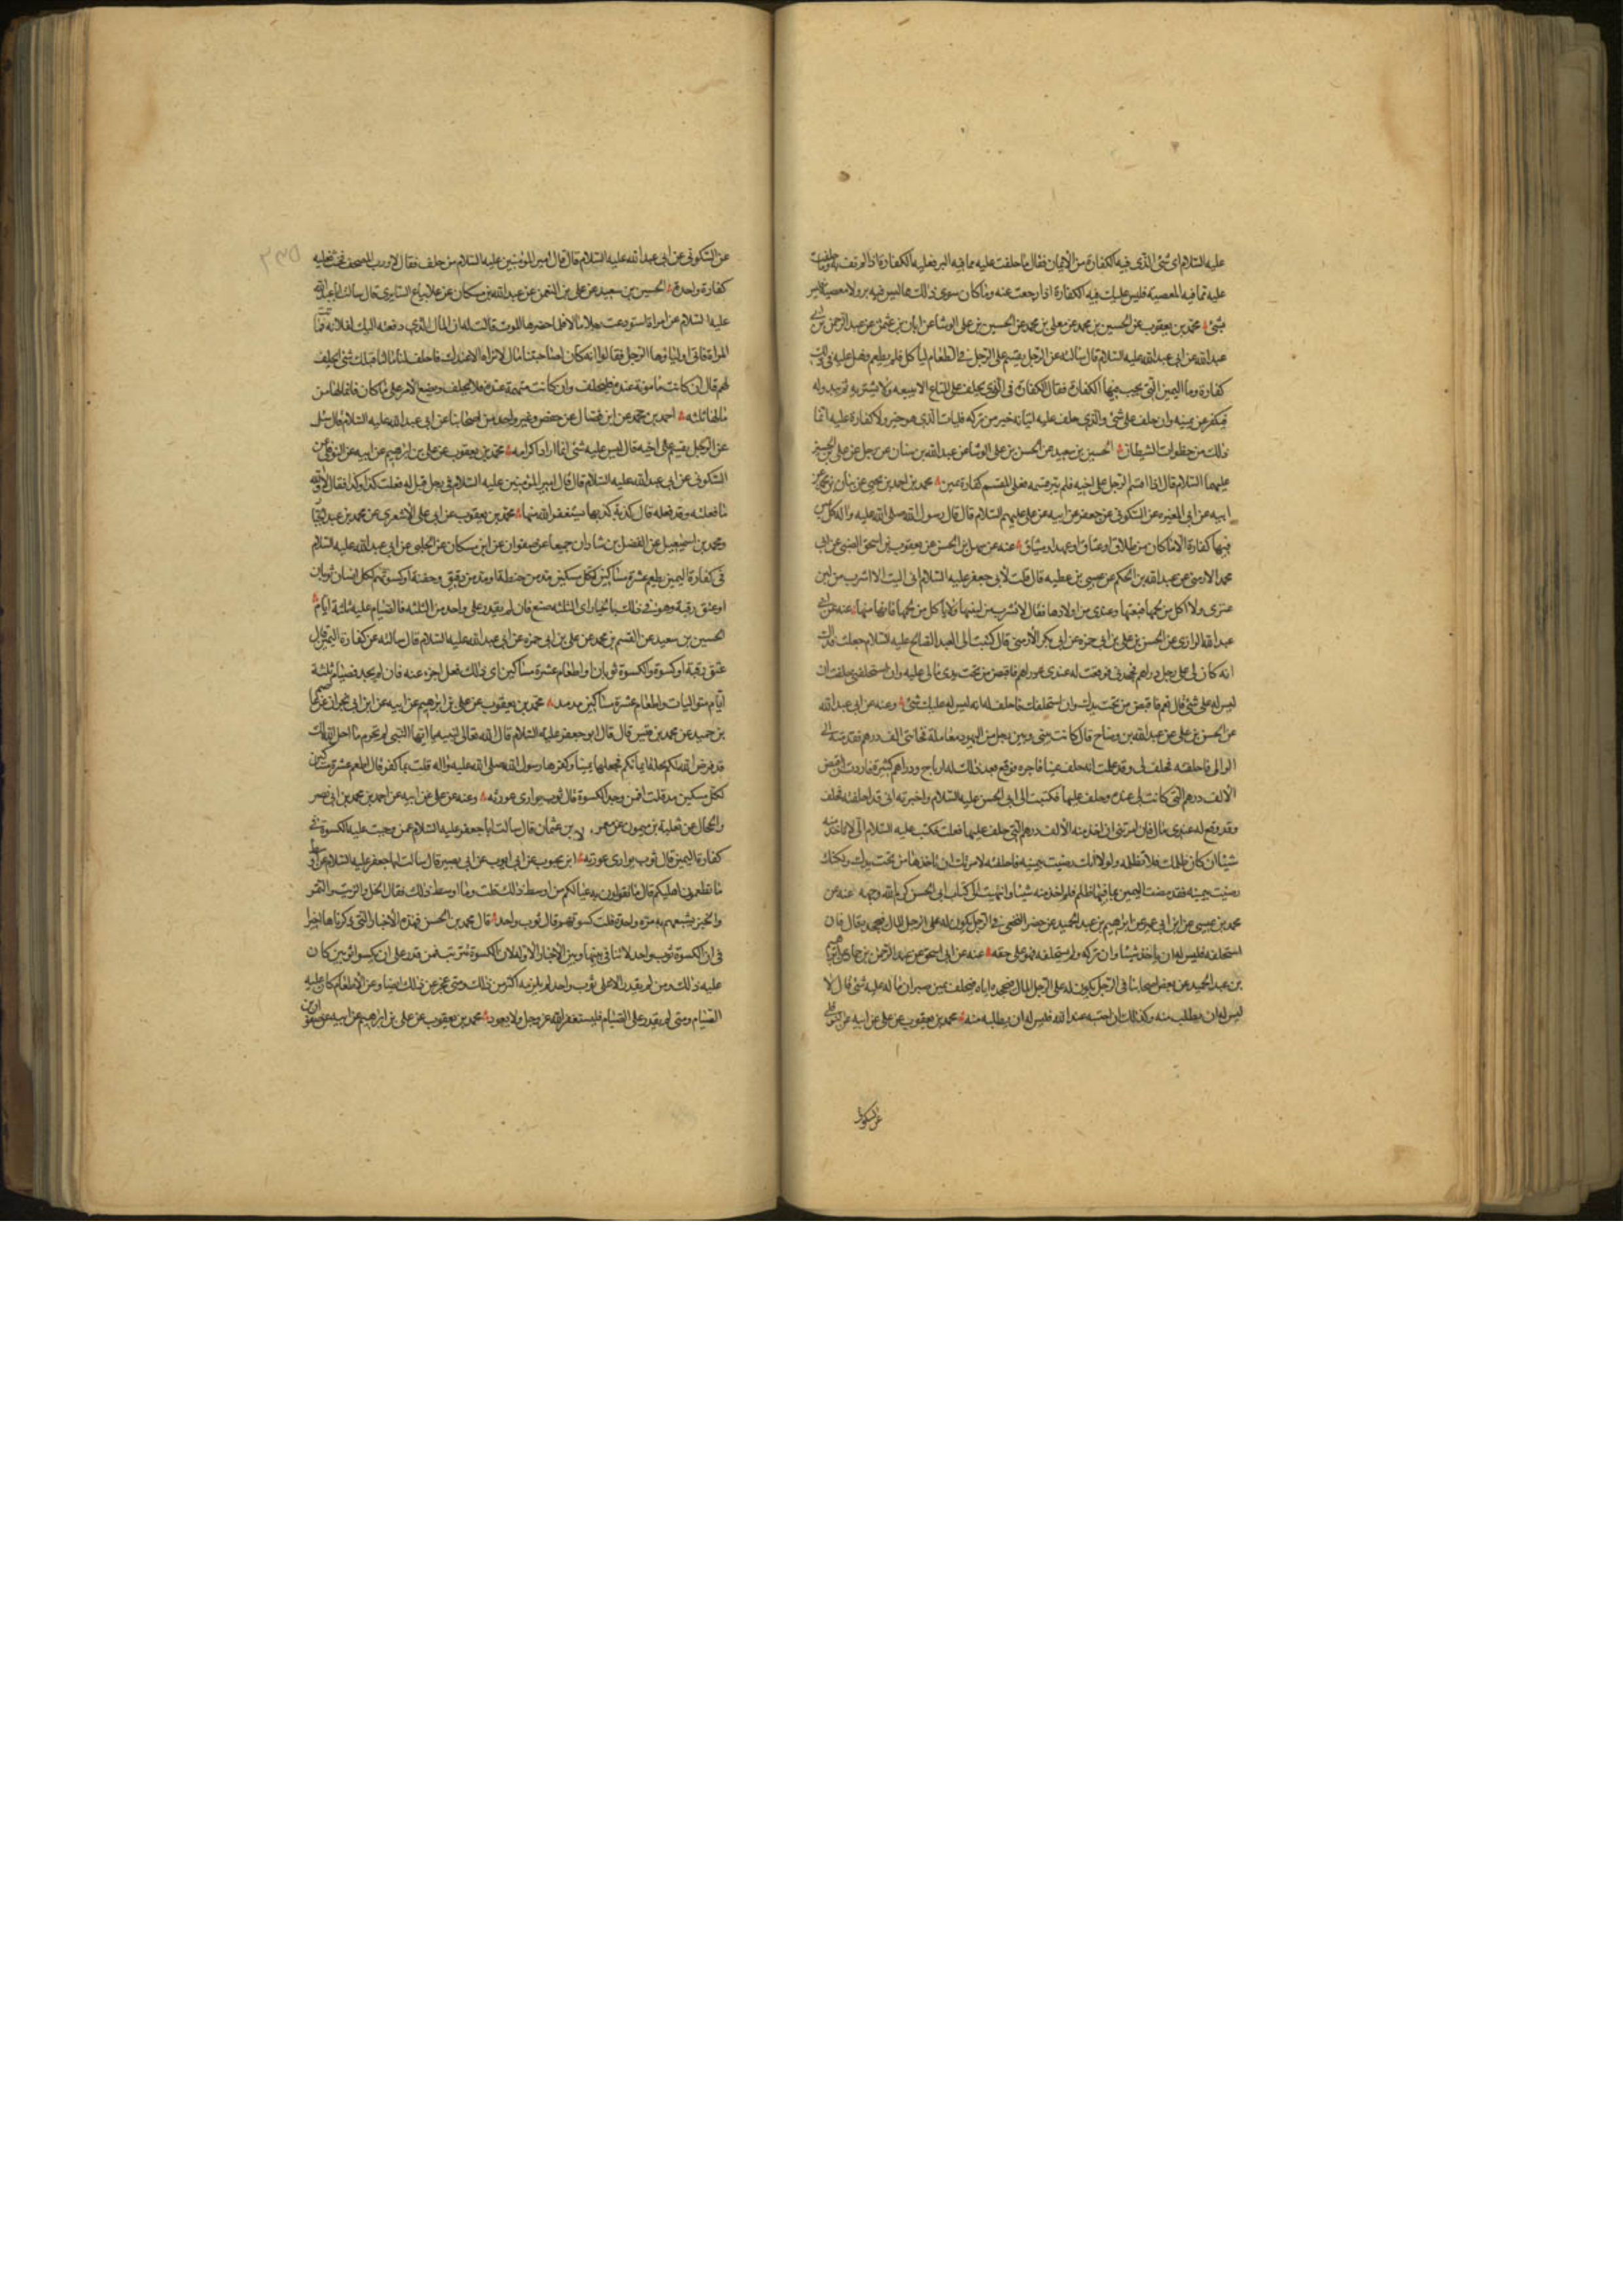 عليه السلام اى شئ الذى فيه الكفارة من الايمان فقال ما حلفت عليه مما فيه البر فعليه الكفارة اذا لم تف به وما حلفت
عليه مما فيه المعصية فليس عليك فيه الكفارة اذا رجعت عنه وما كان سوى ذلك مما ليس فيه بر ولا معصية فليس
بشئ محمد بن يعقوب عن الحسين بن محمد عن معلى بن محمد عن الحسن بن على الوشا عن ابان بن عثمن عن عبد الرحمن بن ابى
عبد الله عن ابى عبد الله عليه السلام قال سالته عن الرجل يقسم على الرجل فى الطعام لياكل فلم يطعم فهل عليه فى ذلك
كفارة وما اليمين التى يجب فيها الكفارة فقال الكفارة فى الذى يحلف على المتاع الا يبيعه ولا يشتريه ثم يبدو له
فيكفر عن يمينه وان حلف على شئ والذى حلف عليه اتيانه خير من تركه فليات الذى هو خير ولا كفارة عليه انما
ذلك من خطوات الشيطان الحسين بن سعيد عن الحسن بن على الوشا عن عبد الله بن سنان عن رجل عن على بن الحسين
عليهما السلام قال اذا اقسم الرجل على اخيه فلم يبر قسمه فعلى المقسم كفارة يمين محمد بن احمد بن يحيى عن بنان بن محمد عن
ابيه عن ابن المغيره عن السكونى عن جعفر عن ابيه عن على عليهم السلام قال قال رسول الله صلى الله عليه واله كل يمين
فيها كفارة الا ما كان من طلاق او عتاق او عهد او ميثاق عنه عن سهل بن الحسن عن يعقوب بن اسحق الضبى عن ابى
محمد الارمنى عن عبد الله بن الحكم عن عيسى بن عطيه قال قلت لابى جعفر عليه السلام انى اليت الا اشرب من لبن
عنزى ولا اكل من لحمها فبعتها وعندى من اولادها فقال لا تشرب من لبنها ولا تاكل من لحمها فانها منها عنه عن ابى
عبد الله الرازى عن الحسن بن على بن ابى حمزه عن ابى بكر الارمنى قال كتبت الى العبد الصالح عليه السلام جعلت فداك
انه كان لى على رجل دراهم فجحدنى فوقعت له عندى دراهم فاقبض من تحت يدى مالى عليه وان استحلفنى حلفت ان
ليس له على شئ قال نعم فاقبض من تحت يدك وان استحلفك فاحلف له انه ليس له عليك شئ وعنه عن ابى عبد الله
عن الحسن بن على عن عبد الله بن وضاح قال كانت بينى وبين رجل من اليهود معاملة فخاننى الف درهم فقدمته الى
الوالى فاحلفته فحلف لى وقد علمت انه حلف يمينا فاجره فوقع بعد ذلك له ارباح ودراهم كثيرة فاردت ان اقبض
الالف درهم التى كانت لى عنده وحلف عليها فكتبت الى ابى الحسن عليه السلام واخبرته انى قد احلفته فحلف
وقد وقع له عندى مال فان امرتنى ان اخذ منه الالف درهم التى حلف عليها فعلت فكتب عليه السلام الى لا تاخذ منه
شيئا ان كان ظلمك فلا تظلمه ولولا انك رضيت بيمينه فاحلفته لامرتك ان تاخذها من تحت يدك ولكنك
رضيت بيمينه فقد مضت اليمين بما فيها فلم اخذ منه شيئا وانتهيت الى كتاب ابى الحسن كرم الله وجهه عنه عن
محمد بن عيسى عن ابن ابى عمير عن ابرهيم بن عبد الحميد عن خضر النخعى فى الرجل يكون له على الرجل المال فيجحده قال فان
استحلفه فليس له ان ياخذ شيئا وان تركه ولم يستحلفه فهو على حقه عنه عن ابى اسحق عن عبد الرحمن بن حماد عن ابرهيم
بن عبد الحميد عن بعض اصحابنا فى الرجل يكون له على الرجل المال فيجحده اياه فيحلف يمين صبر ان ماله عليه شئ قال لا
ليس له ان يطلب منه وكذلك ان احتسبه عند الله فليس له ان يطلبه منه محمد بن يعقوب عن على عن ابيه عن النوفلى
عن السكونى
عن السكونى عن ابى عبد الله عليه السلام قال قال امير المؤمنين عليه السلام من حلف فقال لا ورب المصحف فحنث فعليه
كفارة واحدة الحسين بن سعيد عن على بن النعمن عن عبد الله بن مسكان عن علا بياع السابرى قال سالت ابا عبد الله
عليه السلام عن امراة استودعت رجلا مالا فلما حضرها الموت قالت له ان المال الذى دفعته اليك لفلانه فماتت
المراة فاتى اولياؤها الرجل فقالوا انه كان لصاحبتنا مال لا نراه الا عندك فاحلف لنا مالنا قبلك شئ ايحلف
لهم قال ان كانت مامونة عنده فليحلف وان كانت متهمة عنده فلا يحلف ويضع الامر على ما كان فانما لها من
مالها ثلثه احمد بن محمد عن ابن فضال عن حفص وغير واحد من اصحابنا عن ابى عبد الله عليه السلام قال سئل
عن الرجل يقسم على اخيه قال ليس عليه شئ انما اراد اكرامه محمد بن يعقوب عن على بن ابرهيم عن ابيه عن النوفلى عن
السكونى عن ابى عبد الله عليه السلام قال قال امير المؤمنين عليه السلام فى رجل قيل له فعلت كذا وكذا فقال لا والله
ما فعلته وقد فعله قال كذبة كذبها يستغفر الله منها محمد بن يعقوب عن ابى على الاشعرى عن محمد بن عبد الجبار
ومحمد بن اسمعيل عن الفضل بن شاذان جميعا عن صفوان عن ابن مسكان عن الحلبى عن ابى عبد الله عليه السلام
فى كفارة اليمين يطعم عشرة مساكين لكل مسكين مد من حنطة او مد من دقيق وحفنة او كسوتهم لكل انسان ثوبان
او عتق رقبة وهو فى ذلك بالخيار اى الثلثه صنع فان لم يقدر على واحد من الثلثه فالصيام عليه ثلثة ايام
الحسين بن سعيد عن القسم بن محمد عن على بن ابى حمزه عن ابى عبد الله عليه السلام قال سالته عن كفارة اليمين قال
عتق رقبة او كسوة والكسوة ثوبان او اطعام عشرة مساكين اى ذلك فعل اجزء عنه فان لم يجد فصيام ثلثة
ايام متواليات واطعام عشرة مساكين مد مد محمد بن يعقوب عن على بن ابرهيم عن ابيه عن ابن ابى نجران عن عاصم
بن حميد عن محمد بن قيس قال قال ابو جعفر عليه السلام قال الله تعالى لنبيه يا ايها النبى لم تحرم ما احل الله لك
قد فرض الله لكم تحلة ايمانكم فجعلها يمينا وكفرها رسول الله صلى الله عليه واله قلت بما كفر قال اطعم عشرة مساكين
لكل مسكين مد قلت فمن وجد الكسوة قال ثوب يوارى عورته وعنه عن على عن ابيه عن احمد بن محمد بن ابى نصر
والحجال عن ثعلبة بن ميمون عن معمر بن عثمان قال سالت ابا جعفر عليه السلام عمن وجبت عليه الكسوة فى
كفارة اليمين قال ثوب يوارى عورته ابن محبوب عن ابى ايوب عن ابى بصير قال سالت ابا جعفر عليه السلام عن اوسط
ما تطعمون اهليكم قال ما تقوتون به عيالكم من اوسط ذلك قلت وما اوسط ذلك فقال الخل والزيت والتمر
والخبز يشبعهم به مرة واحدة قلت كسوتهم قال ثوب واحد قال محمد بن الحسن فهذه الاخبار التى ذكرناها اخيرا
فى ان الكسوة ثوب واحد لا تنافى بينها وبين الاخبار الاوله لان الكسوة تترتب فمن قدر على ان يكسو ثوبين كان
عليه ذلك ومن لم يقدر الا على ثوب واحد لم يلزمه اكثر من ذلك ومتى عجز عن ذلك ايضا وعن الاطعام كان عليه
الصيام ومتى لم يقدر على الصيام فليستغفر الله عز وجل ولا يعود محمد بن يعقوب عن على بن ابرهيم عن ابيه عن صفوان بن